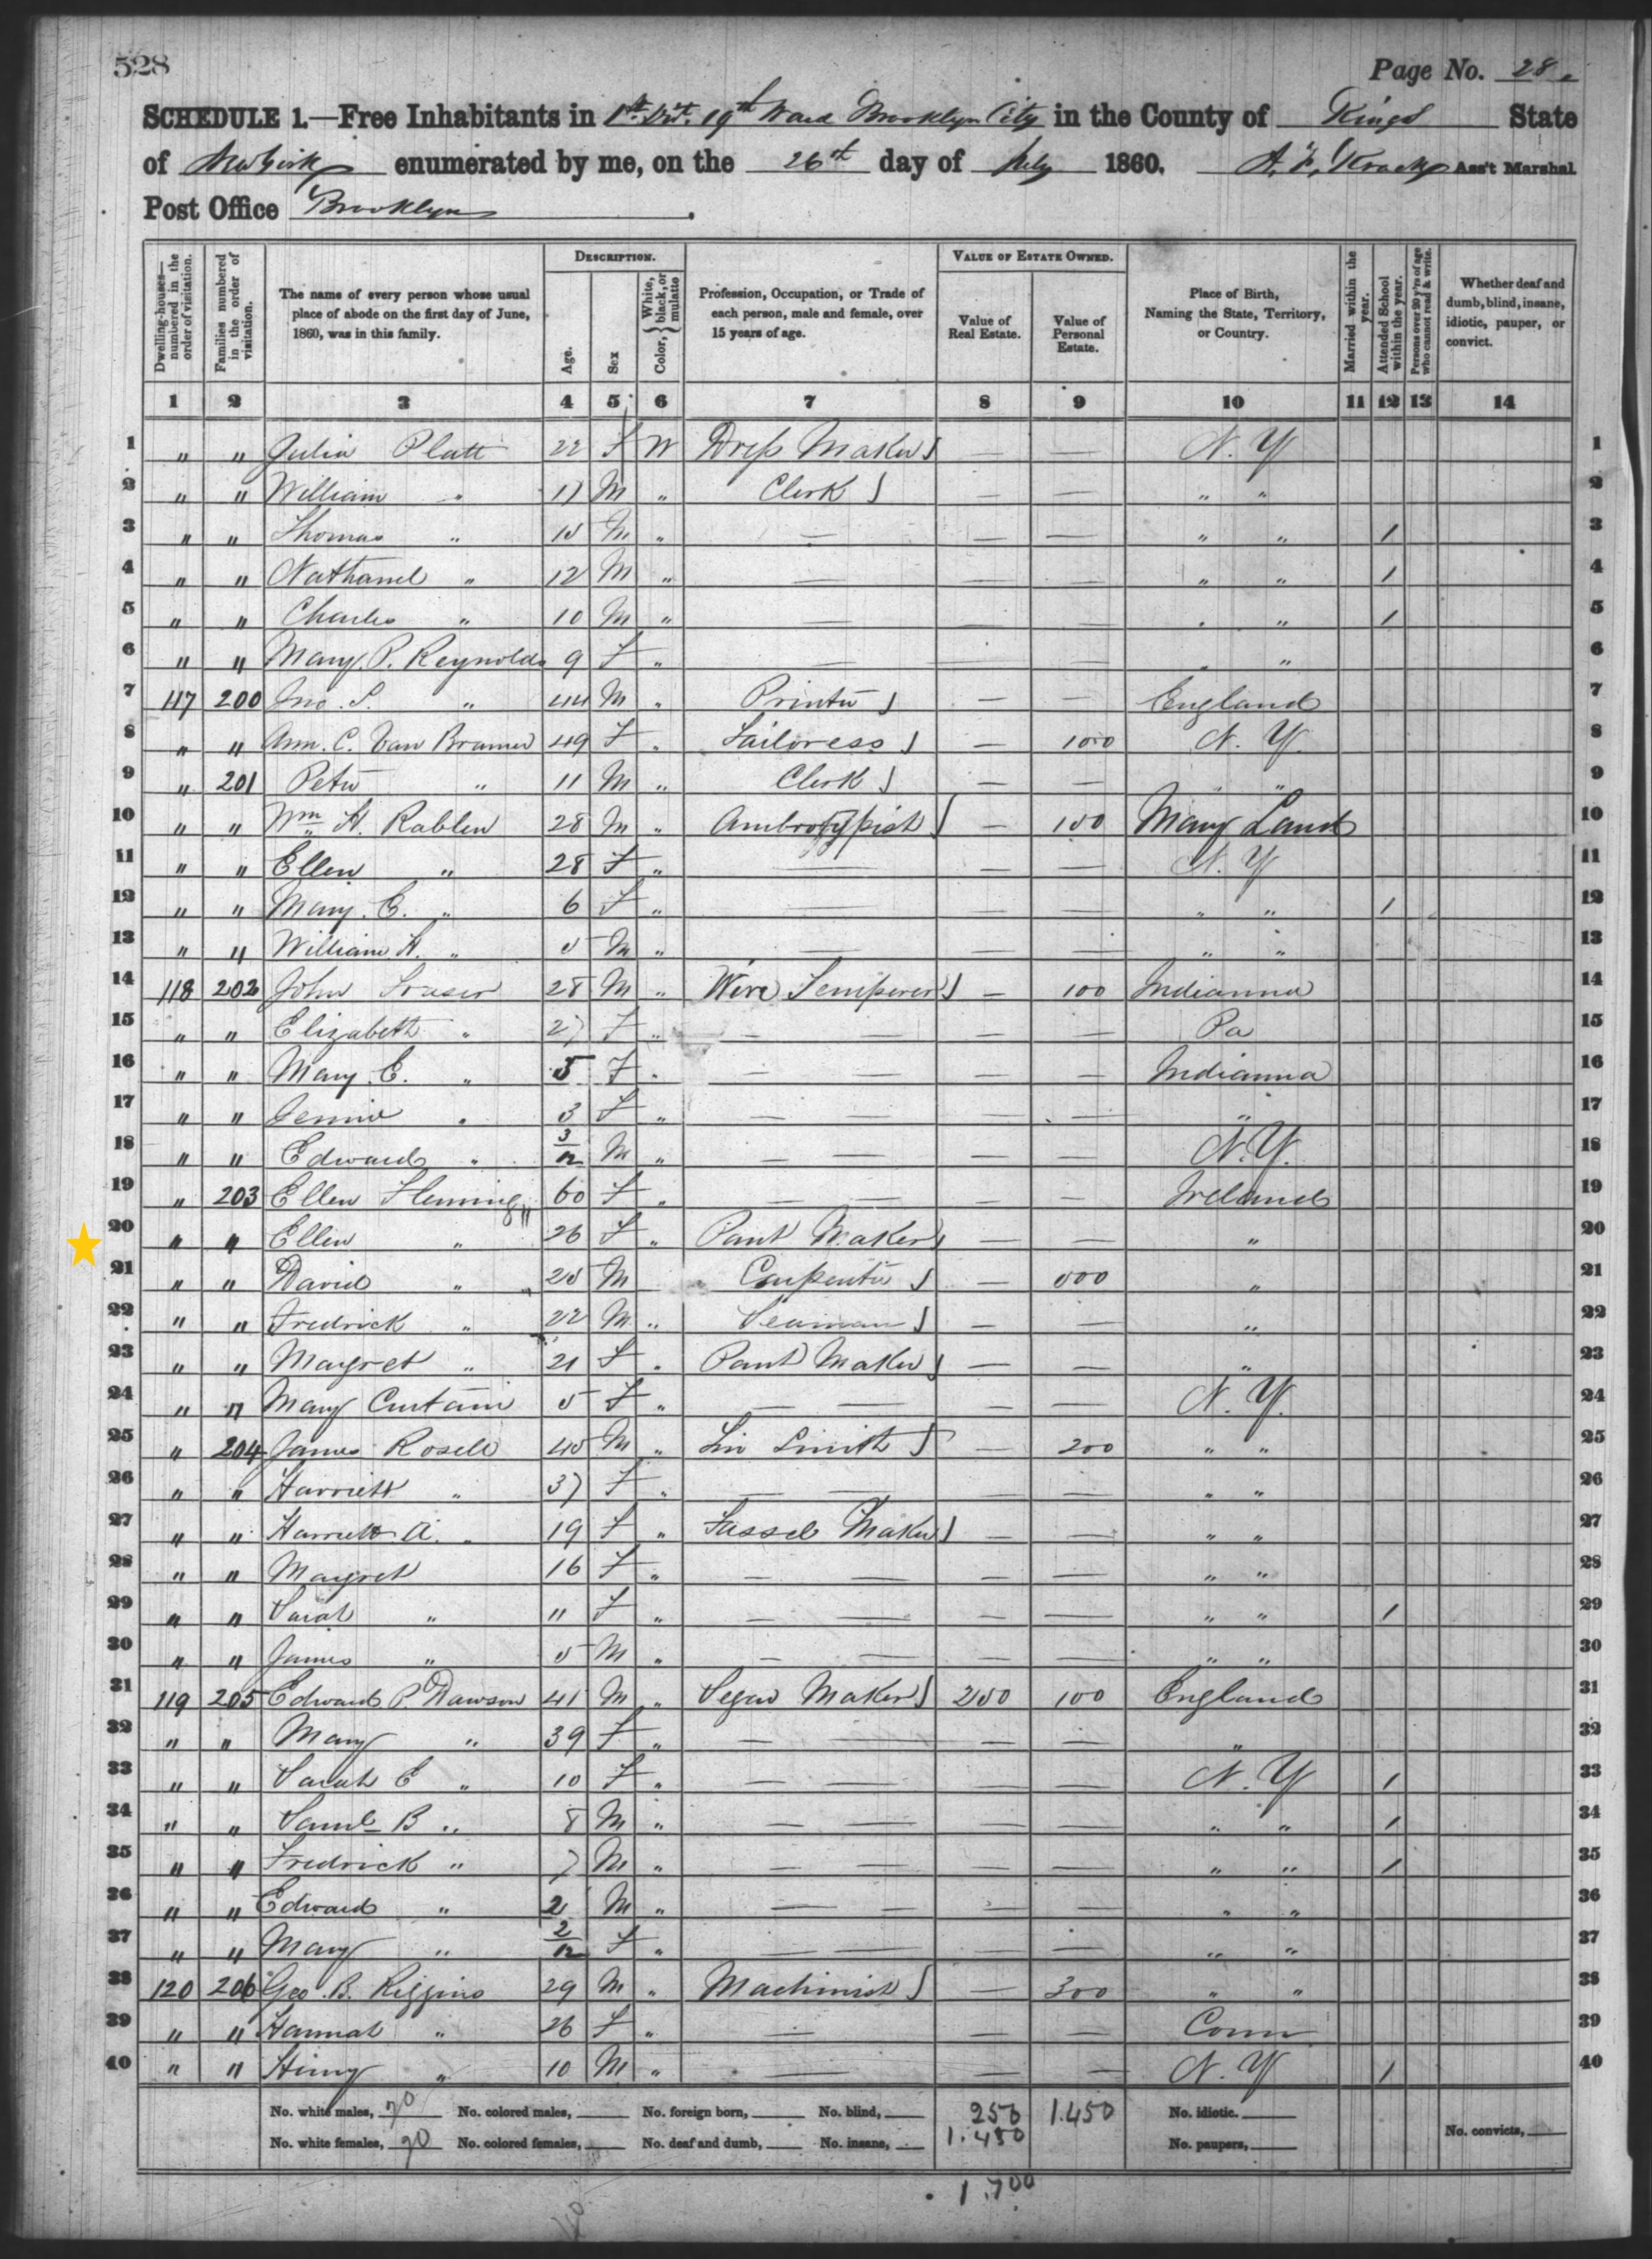 528
Page No. 28.
SCHEDULE 1.—Free Inhabitants in 1st Dist. 19th Ward Brooklyn City in the County of Kings State
of New York enumerated by me, on the 26th day of July 1860. Ass't Marshal
Post Office Brooklyn.
Dwelling-houses—numbered in the order of visitation.
Families numbered in the order of visitation.
The name of every person whose usual place of abode on the first day of June, 1860, was in this family.
DESCRIPTION.
Age.
Sex
Color, { White, black, or mulatto
Profession, Occupation, or Trade of each person, male and female, over 15 years of age.
VALUE OF ESTATE OWNED.
Value of Real Estate.
Value of Personal Estate.
Place of Birth, Naming the State, Territory, or Country.
Married within the year.
Attended School within the year.
Persons over 20 y'rs of age who cannot read & write.
Whether deaf and dumb, blind, insane, idiotic, pauper, or convict.
1 2 3 4 5 6 7 8 9 10 11 12 13 14
1 " " Julia Platt 22 F W Dress Maker — — N. Y 1
2 " " William " 17 M " Clerk — — " " 2
3 " " Thomas " 15 M " — — — " " 1 3
4 " " Nathanel " 12 M " — — — " " 1 4
5 " " Charles " 10 M " — — — " " 1 5
6 " " Mary P. Reynolds 9 F " — — — " " 6
7 117 200 Jno. S. " 44 M " Printer — — England 7
8 " " Ann. C. Van Bramer 49 F " Tailoress — 100 N. Y. 8
9 " 201 Peter " 11 M " Clerk — — " " 9
10 " " Wm H. Rablen 28 M " — 100 Mary Land 10
11 " " Ellen " 28 F " — — — N. Y 11
12 " " Mary. E. " 6 F " — — — " " 1 12
13 " " William H. " 5 M " — — — " " 13
14 118 202 John Fraser 28 M " Wire Temperer — 100 Indianna 14
15 " " Elizabeth " 27 F " — — — — Pa 15
16 " " Mary. E. " 5 F " — — — — Indianna 16
17 " " Jennie " 3 F " — — — — " 17
18 " " Edward " 3/12 M " — — — — N. Y. 18
19 " 203 Ellen Fleming 60 F " — — — — Ireland 19
20 " " Ellen " 26 F " Pant Maker — — " 20
21 " " David " 25 M Carpenter — 500 " 21
22 " " Fredrick " 22 M " Seaman — — " 22
23 " " Magret " 21 F " Pant Maker — — " 23
24 " " Mary Curtain 5 F " — — — — N. Y. 24
25 " 204 James Rosell 45 M " Tin Smith — 200 " " 25
26 " " Harriett " 37 F " — — — — " " 26
27 " " Harriett A. " 19 F " Tassel Maker — — " " 27
28 " " Magret 16 F " — — — — " " 28
29 " " Sarah " 11 F " — — — — " " 1 29
30 " " James " 5 M " — — — — " " 30
31 119 205 Edward P. Dawson 41 M " Segar Maker 250 100 England 31
32 " " Mary " 39 F " — — — — " 32
33 " " Sarah E " 10 F " — — — — N. Y 1 33
34 " " Saml B " 8 M " — — — — " " 1 34
35 " " Fredrick " 7 M " — — — — " " 1 35
36 " " Edward " 2 M " — — — — " " 36
37 " " Mary " 2/12 F " — — — — " " 37
38 120 206 Geo. B. Riggins 29 M " Machinist — 300 " " 38
39 " " Hannah " 26 F " — — — Conn 39
40 " " Hinry " 10 M " — — — N. Y 1 40
No. white males, 20 No. colored males, No. foreign born, No. blind, 250 1.450 No. idiotic.
No. white females, 20 No. colored females, No. deaf and dumb, No. insane, 1.450 No. paupers, No. convicts,
1.700
40